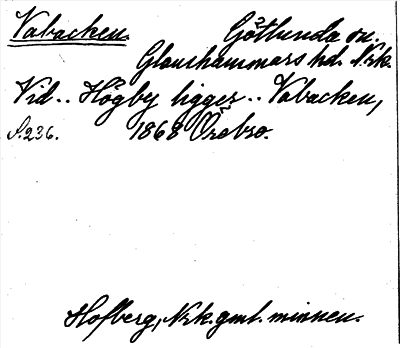 Vabacken. Götlunda sn.
Glanshammars hd. Nrk.
Vid.. Högby ligger.. Vabacken,
S.236. 1868 Örebro.
Hofberg, Nrk. gml. minnen.